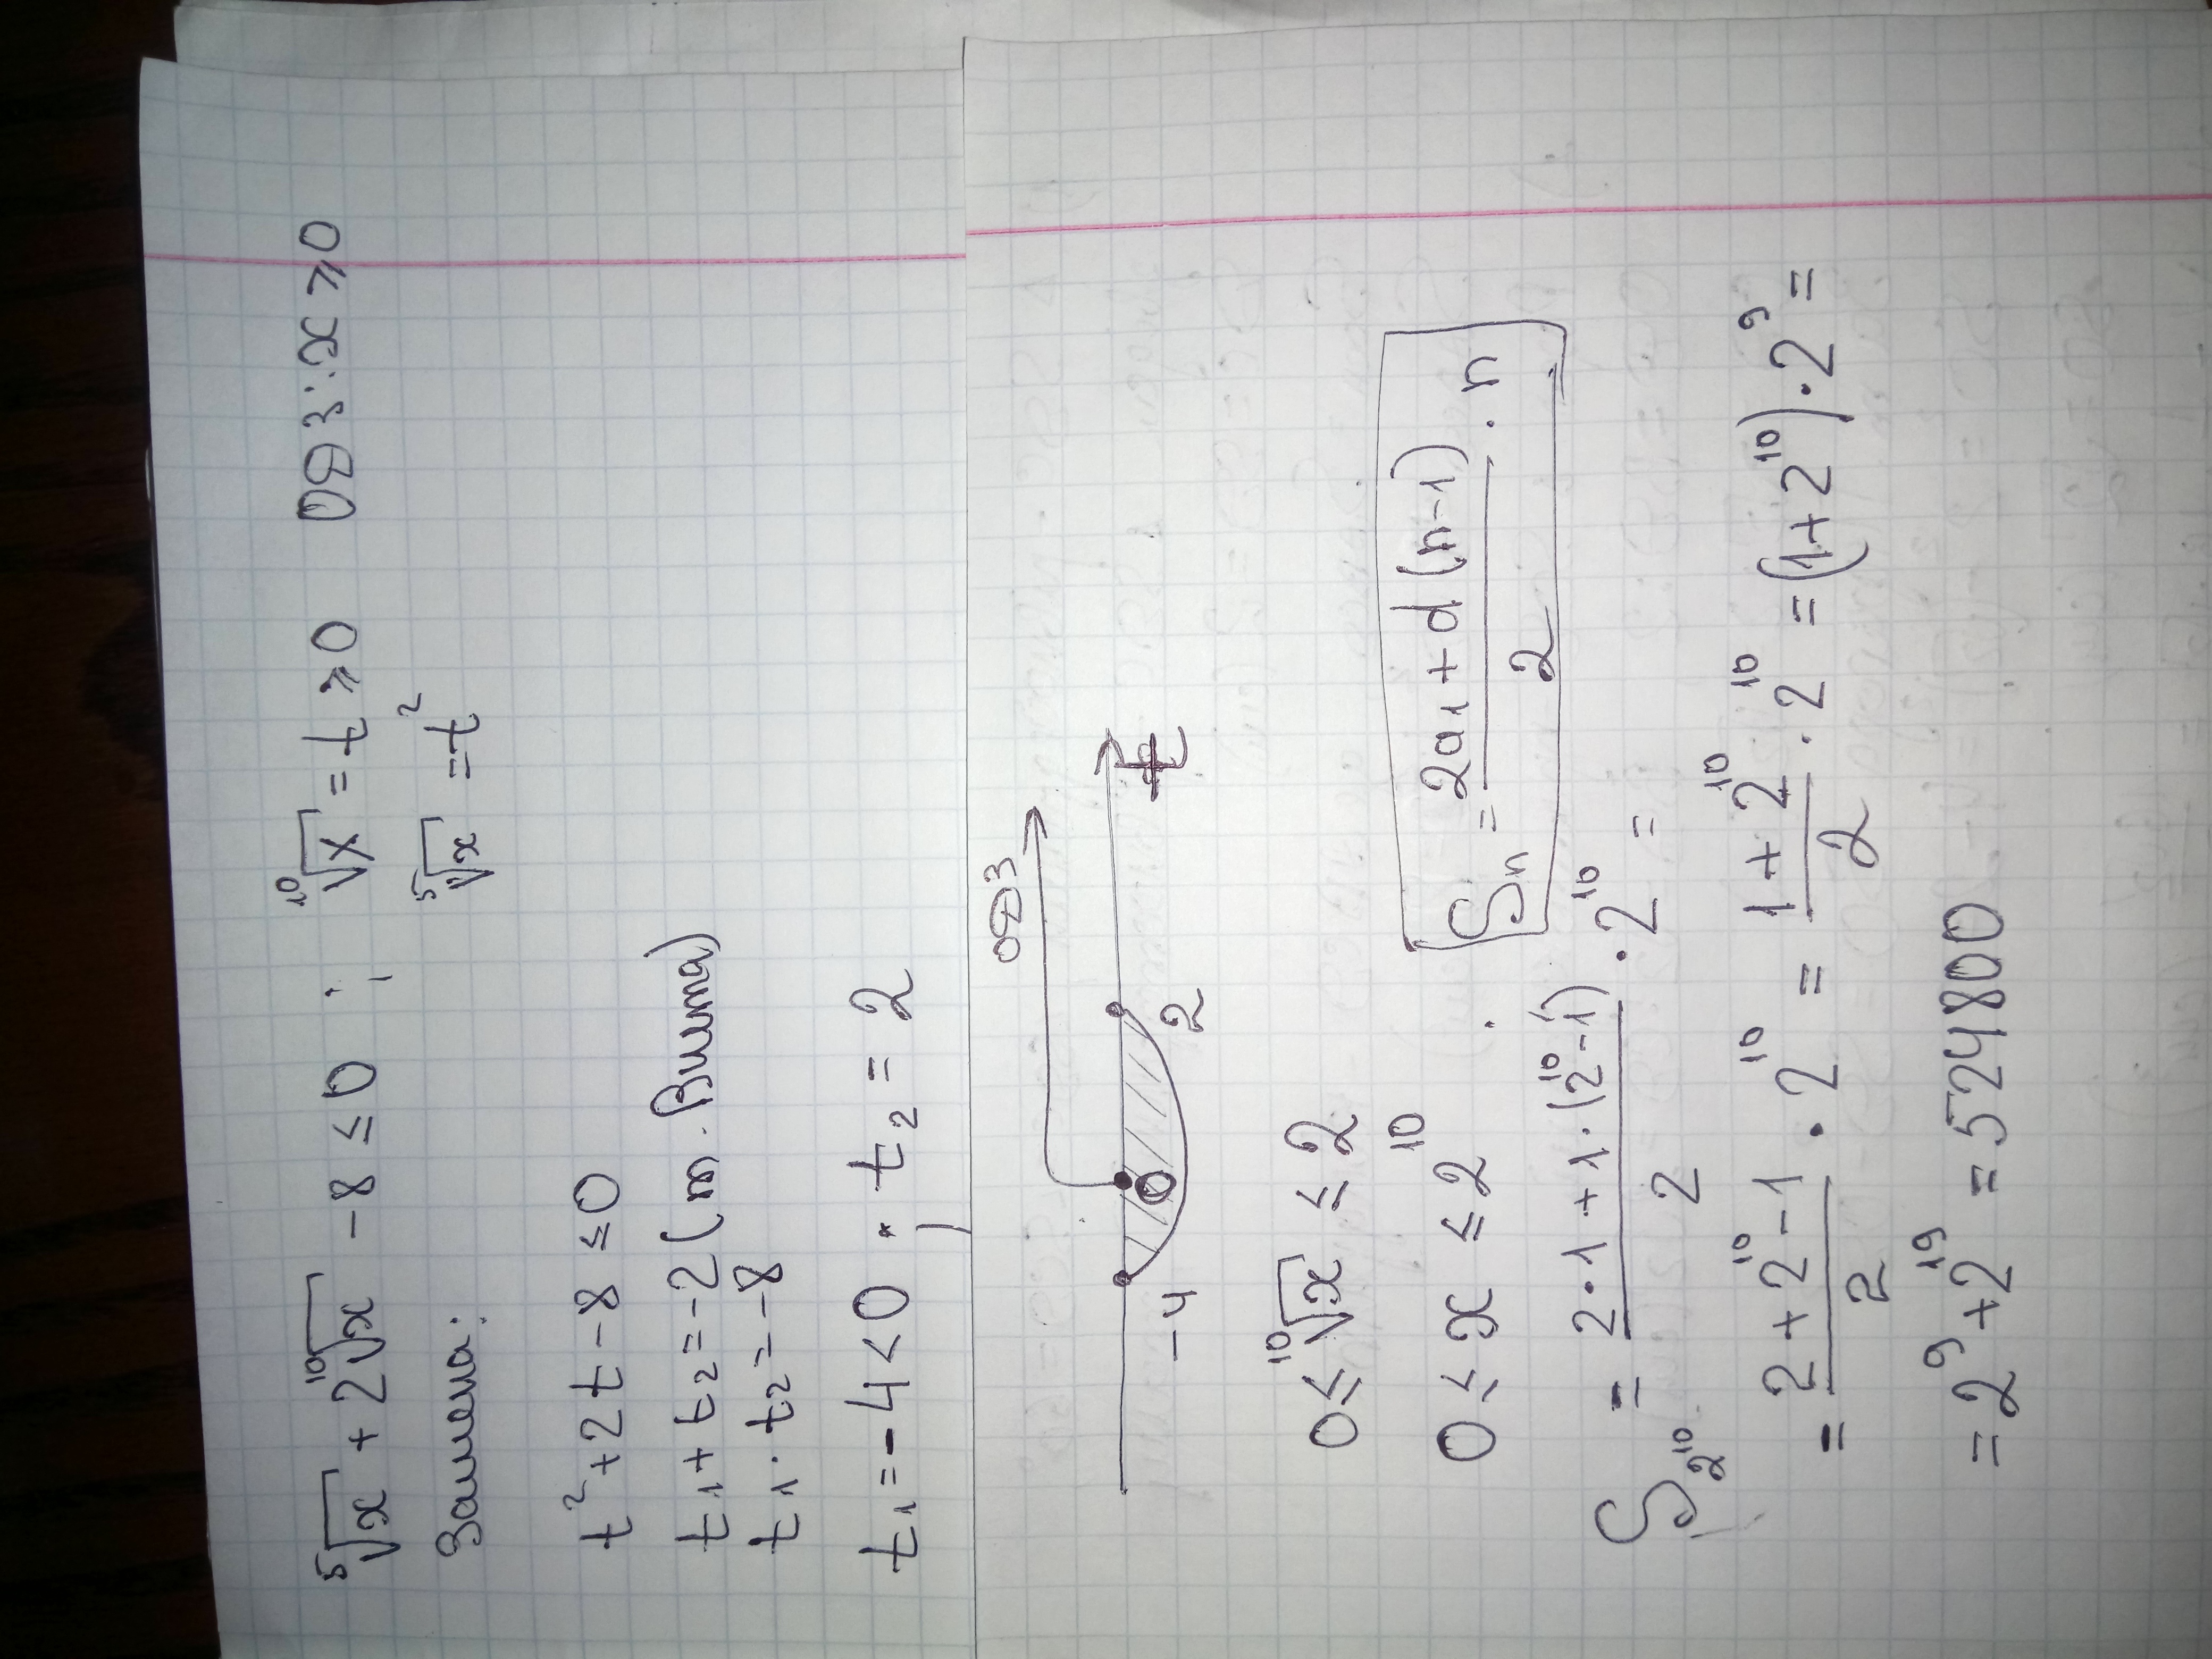 ⁵√x + 2¹⁰√x - 8 ≤ 0 ; ¹⁰√x = t ⩾ 0 ОДЗ: x ⩾ 0
Замена: ⁵√x = t²
t² + 2t - 8 ≤ 0
t₁ + t₂ = -2 (т. Виета)
t₁ · t₂ = -8
t₁ = -4 < 0 ; t₂ = 2
ОДЗ
-4 0 2 t
0 ≤ ¹⁰√x ≤ 2
0 ≤ x ≤ 2¹⁰
Sₙ = (2a₁ + d(n-1))/2 · n
S₂¹⁰ = (2·1 + 1·(2¹⁰-1))/2 · 2¹⁰ =
= (2 + 2¹⁰ - 1)/2 · 2¹⁰ = (1 + 2¹⁰)/2 · 2¹⁰ = (1 + 2¹⁰) · 2⁹ =
= 2⁹ + 2¹⁹ = 524800